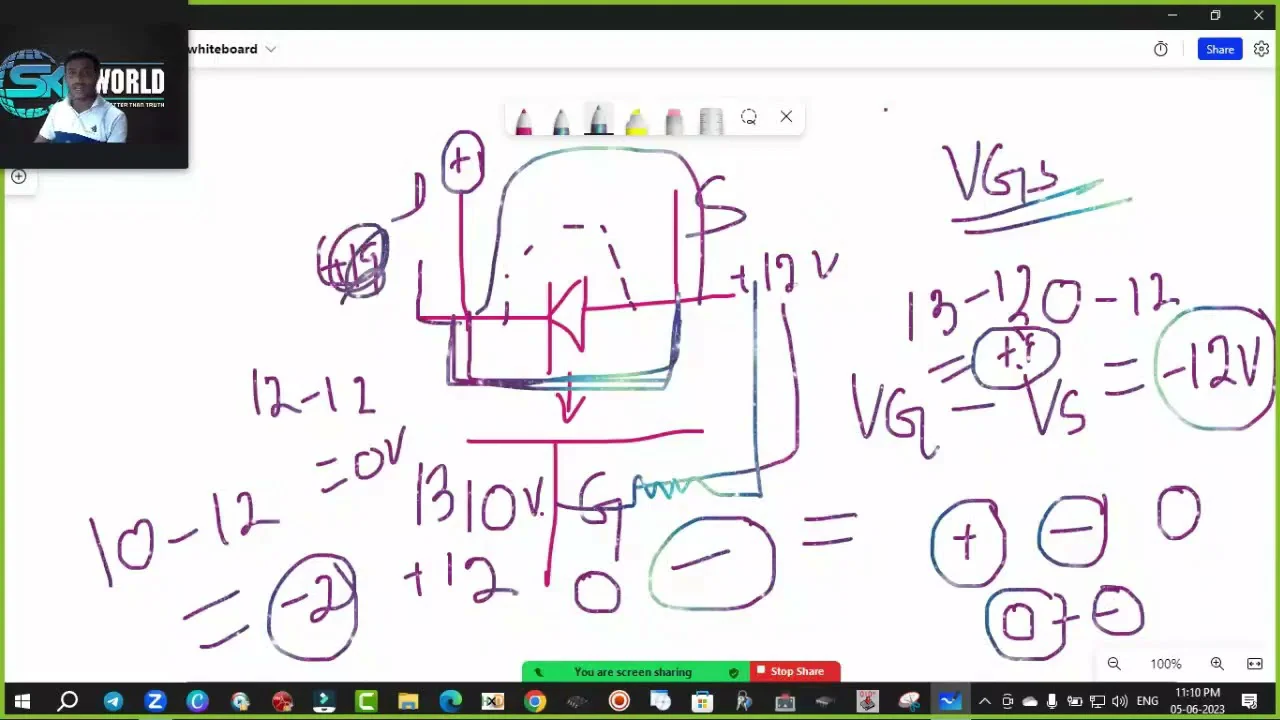 whiteboard
Share
SK WORLD
BETTER THAN TRUTH
+
D
S
VGs
+12V
13-12 0-12
= + = -12V
VG - VS
12-12
= 0V
13 10V. G
10-12
= -2V
+12 0 - = + - 0
0 + -
You are screen sharing
Stop Share
100%
ENG
11:10 PM
05-06-2023